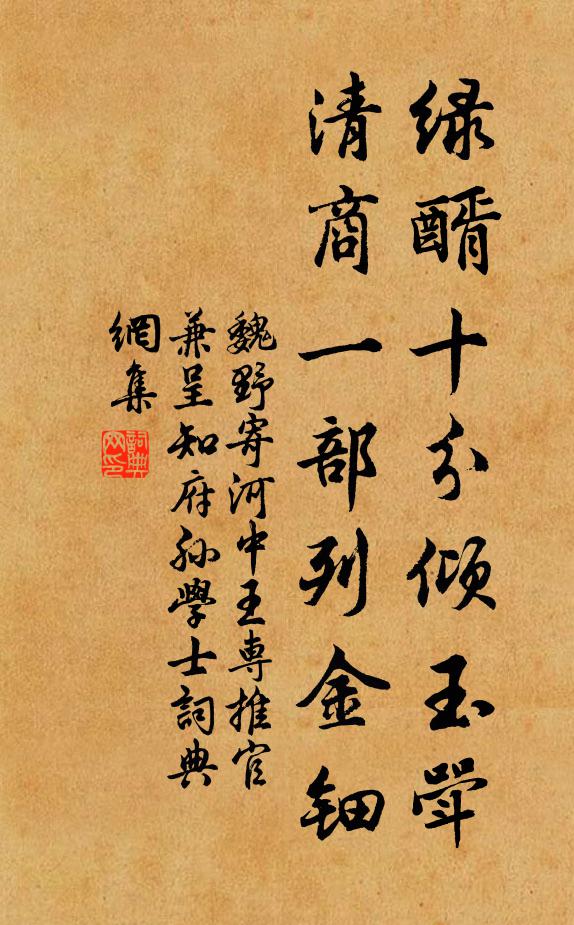 绿醑十分倾玉斝
清商一部列金钿
魏野寄河中王專推官
兼呈知府孙學士詞典
網集
詞典
网印